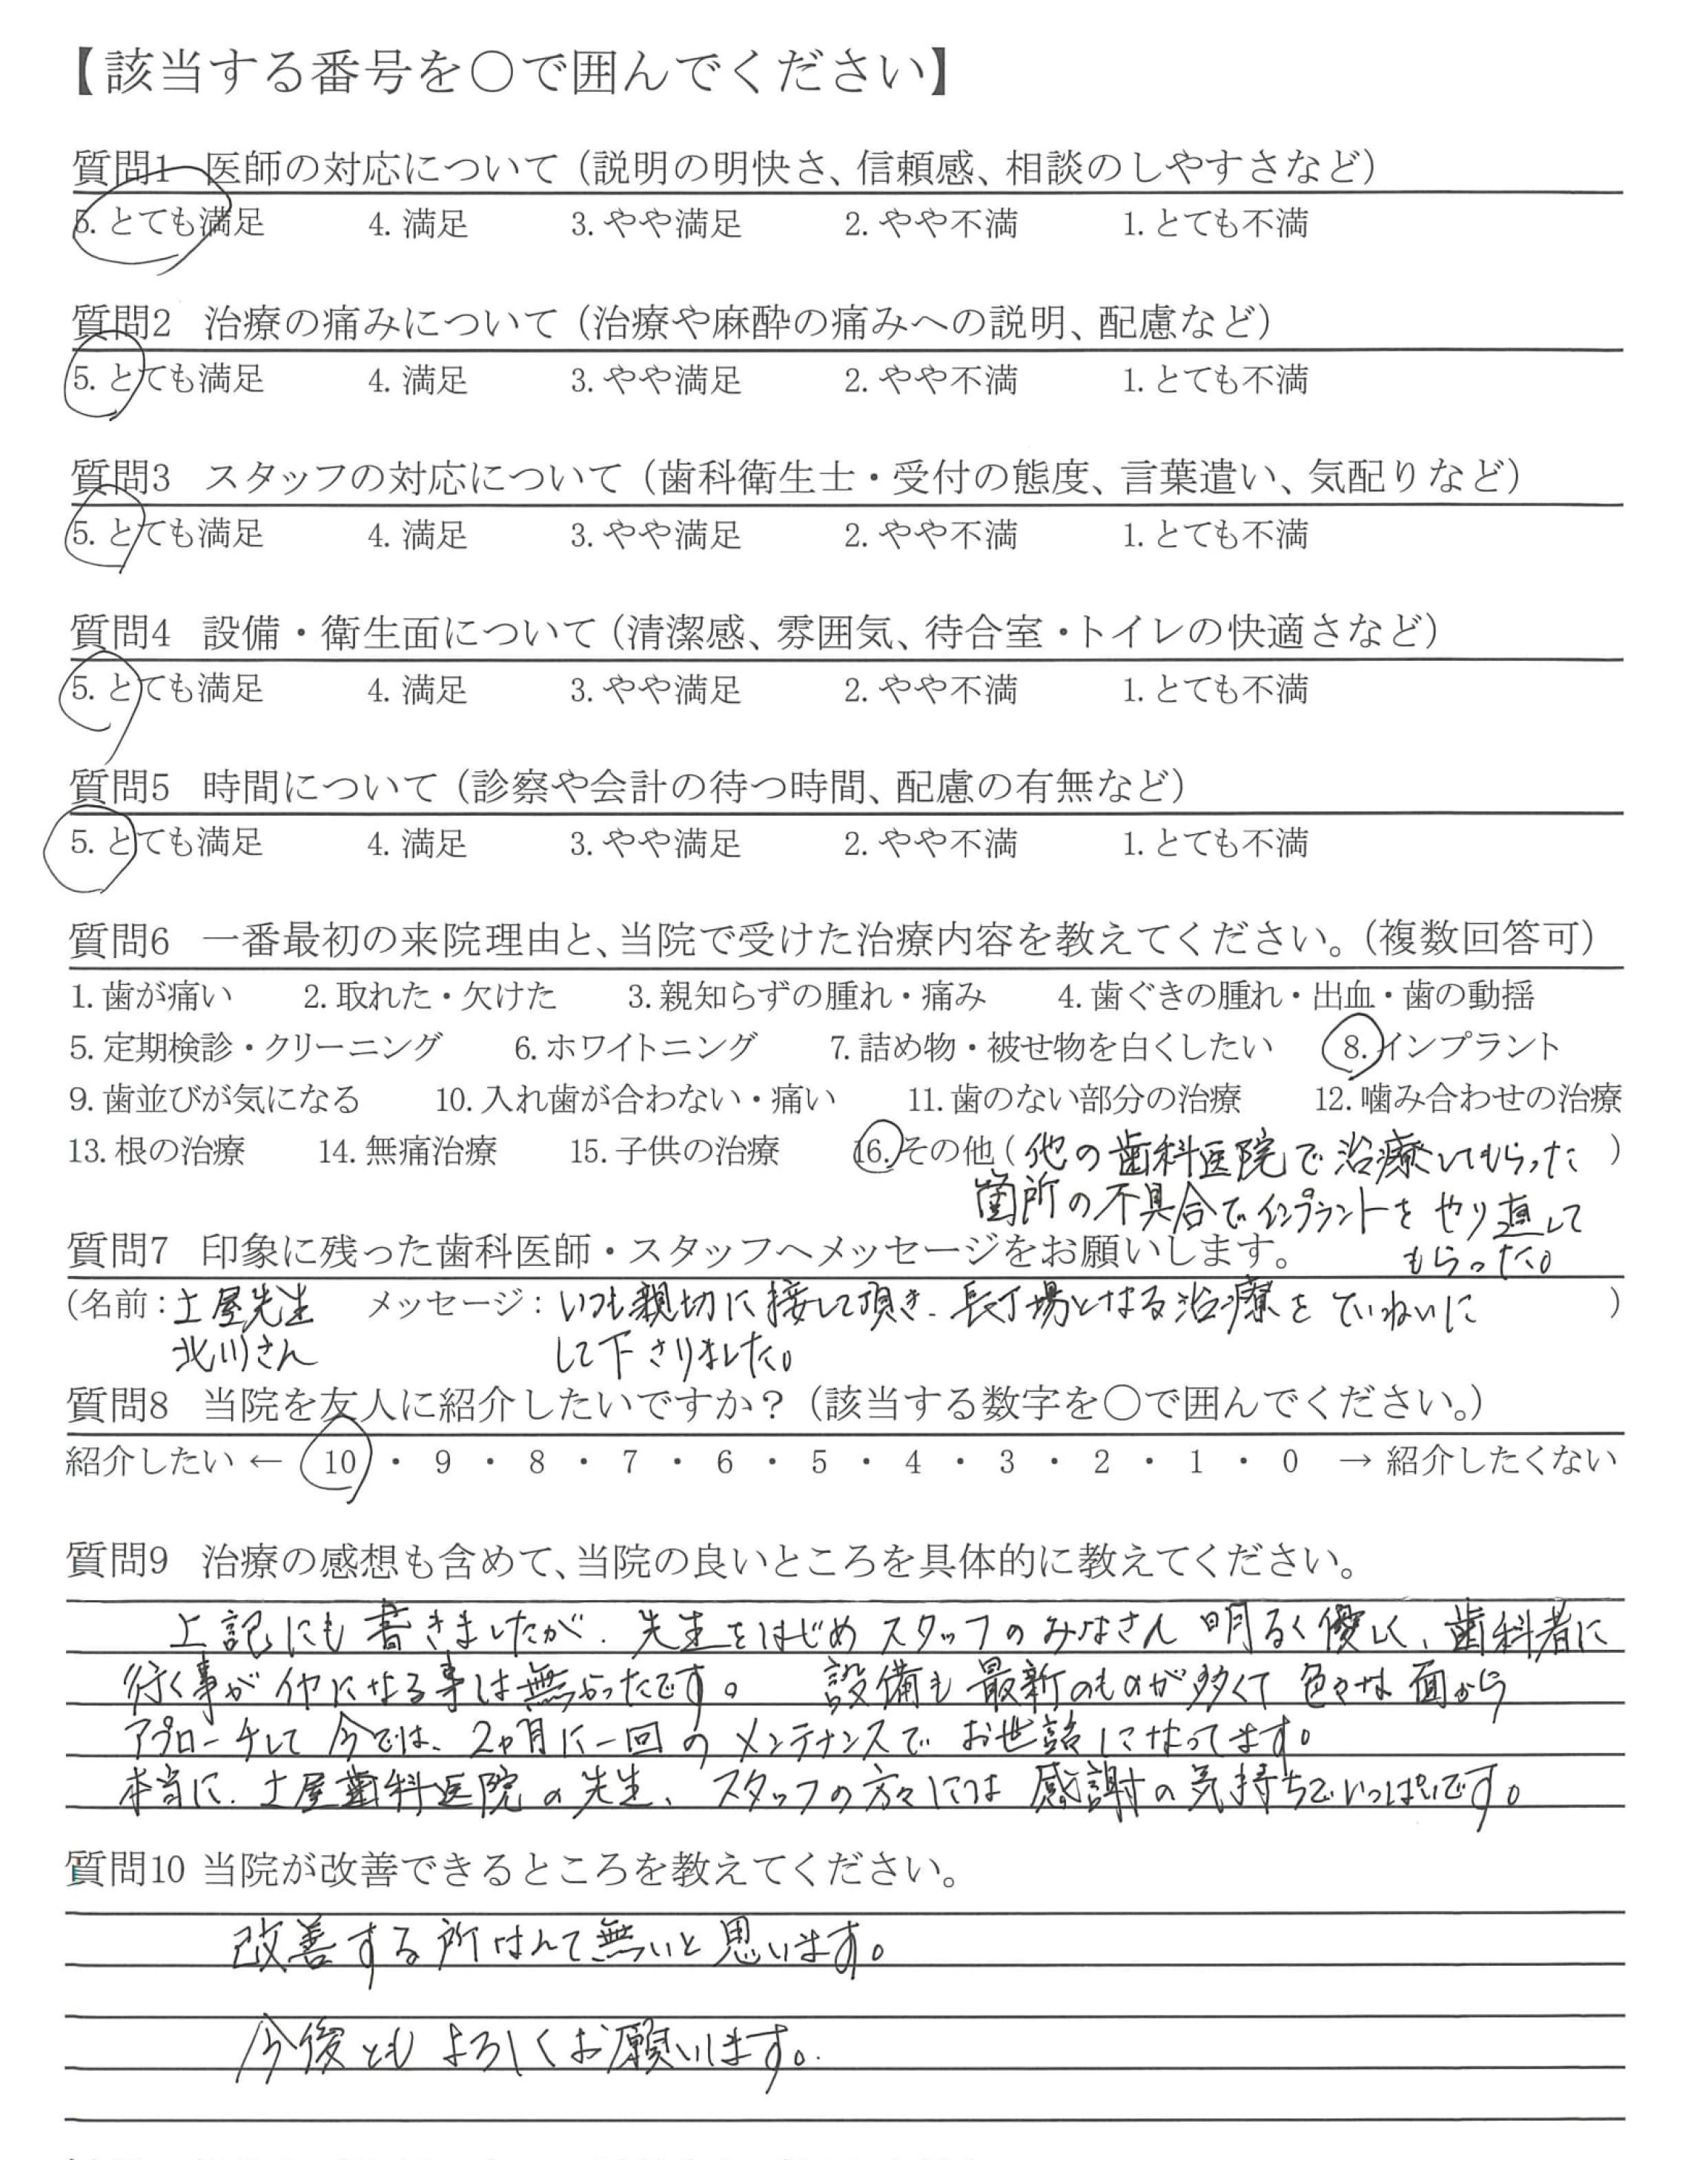 【該当する番号を○で囲んでください】
質問1 医師の対応について（説明の明快さ、信頼感、相談のしやすさなど）
5. とても満足 4. 満足 3. やや満足 2. やや不満 1. とても不満
質問2 治療の痛みについて（治療や麻酔の痛みへの説明、配慮など）
5. とても満足 4. 満足 3. やや満足 2. やや不満 1. とても不満
質問3 スタッフの対応について（歯科衛生士・受付の態度、言葉遣い、気配りなど）
5. とても満足 4. 満足 3. やや満足 2. やや不満 1. とても不満
質問4 設備・衛生面について（清潔感、雰囲気、待合室・トイレの快適さなど）
5. とても満足 4. 満足 3. やや満足 2. やや不満 1. とても不満
質問5 時間について（診察や会計の待つ時間、配慮の有無など）
5. とても満足 4. 満足 3. やや満足 2. やや不満 1. とても不満
質問6 一番最初の来院理由と、当院で受けた治療内容を教えてください。（複数回答可）
1. 歯が痛い 2. 取れた・欠けた 3. 親知らずの腫れ・痛み 4. 歯ぐきの腫れ・出血・歯の動揺
5. 定期検診・クリーニング 6. ホワイトニング 7. 詰め物・被せ物を白くしたい 8. インプラント
9. 歯並びが気になる 10. 入れ歯が合わない・痛い 11. 歯のない部分の治療 12. 噛み合わせの治療
13. 根の治療 14. 無痛治療 15. 子供の治療 16. その他（他の歯科医院で治療してもらった）
箇所の不具合でインプラントをやり直して
もらった。
質問7 印象に残った歯科医師・スタッフへメッセージをお願いします。
（名前：土屋先生 メッセージ：いつも親切に接して頂き、長丁場となる治療をていねいに）
北川さん して下さりました。
質問8 当院を友人に紹介したいですか？（該当する数字を○で囲んでください。）
紹介したい ← 10 ・ 9 ・ 8 ・ 7 ・ 6 ・ 5 ・ 4 ・ 3 ・ 2 ・ 1 ・ 0 → 紹介したくない
質問9 治療の感想も含めて、当院の良いところを具体的に教えてください。
上記にも書きましたが、先生をはじめスタッフのみなさん明るく優しく、歯科者に
行く事がイヤになる事は無かったです。 設備も最新のものが多くて色々な面から
アプローチして今では、2ヶ月に一回のメンテナンスでお世話になってます。
本当に、土屋歯科医院の先生、スタッフの方々には感謝の気持ちでいっぱいです。
質問10 当院が改善できるところを教えてください。
改善する所なんて無いと思います。
今後ともよろしくお願いします。